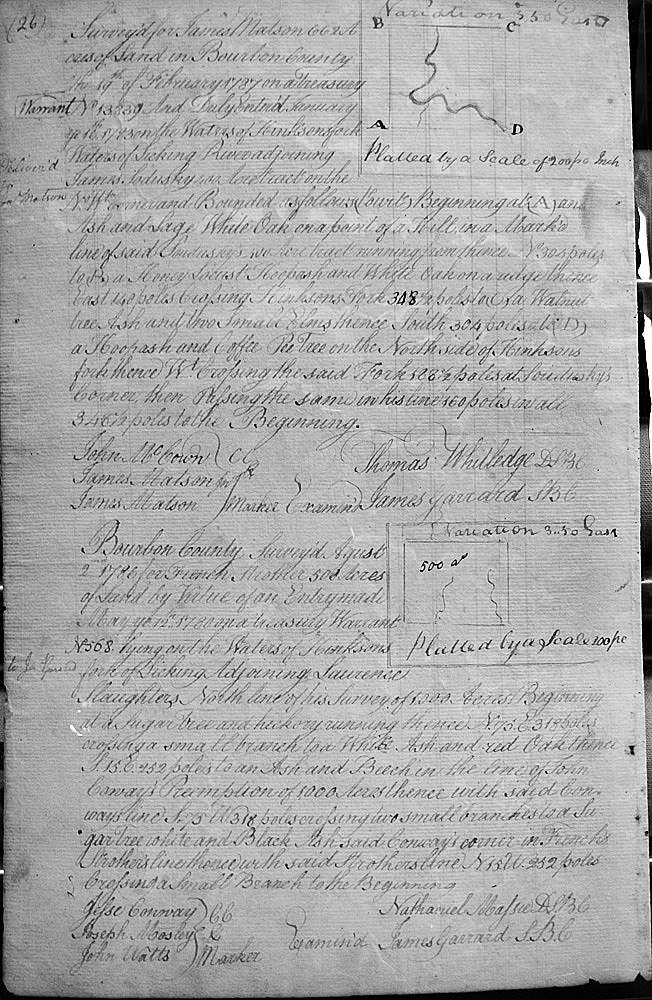 (26)
Survey'd for James Matson 662 A
cres of Land in Bourbon County
the 19th of February 1787 on a treasury
Warrant No 13739 And Duly Enter'd January
on the Waters of Hinkson fork
Waters of Licking River adjoining
James tract on the
Deliver'd
Matson
Variation 3.50 East
B C
A D
Platted by a Scale of 200 po Inch
and Bounded as follows (towit) Beginning at (A) an
Ash and Large White Oak on a point of a Hill in a Mark'd
line of said tract running from thence No 304 poles
to B a Honey Locust Hoopash and White Oak on a ridge thence
East 140 poles Crossing Hinksons Fork 348½ poles to C a Walnut
tree Ash and two Small Elms thence South 304 poles at (D)
a Hoopash and Coffee Tree on the North side of Hinksons
fork thence Wt Crossing the said Fork poles at
Corner, then Crossing the same in his line 160 poles in all
348½ poles to the Beginning.
John McCown } CC
James Matson Junr
James Matson } Marker
Thomas Whitledge DSBC
Examind James Garrard SBC
Bourbon County Survey'd Agust
2nd 1786 for French 500 Acres
of Land by Virtue of an Entry made
May ye 12th 1780 on a treasury Warrant
No 568 lying on the Waters of Hinksons
fork of Licking Adjoining Laurence
Variation 3..50 East
500 a
Platted by a Scale 200 po
Slaughters North line of his Survey of 1000 Acres Beginning
at a Sugar tree and hickory running thence N. 75 E. 318 poles
crossing a small branch to a White Ash and red Oak thence
S. 15 E. 252 poles to an Ash and Beech in the line of John
Conway's Preemption of 1000 Acres thence with said Con-
ways line S. 75 W 318 poles crossing two small branches to a Su
gar tree white and Black Ash said Conway's corner in French
Strothers line thence with said Strothers line N 15 W. 252 poles
Crossing a Small Branch to the Beginning
Jesse Conway } CC
Joseph Mosley
John Watts } Marker
Nathaniel Massie DSBC
Examin'd James Garrard SBC